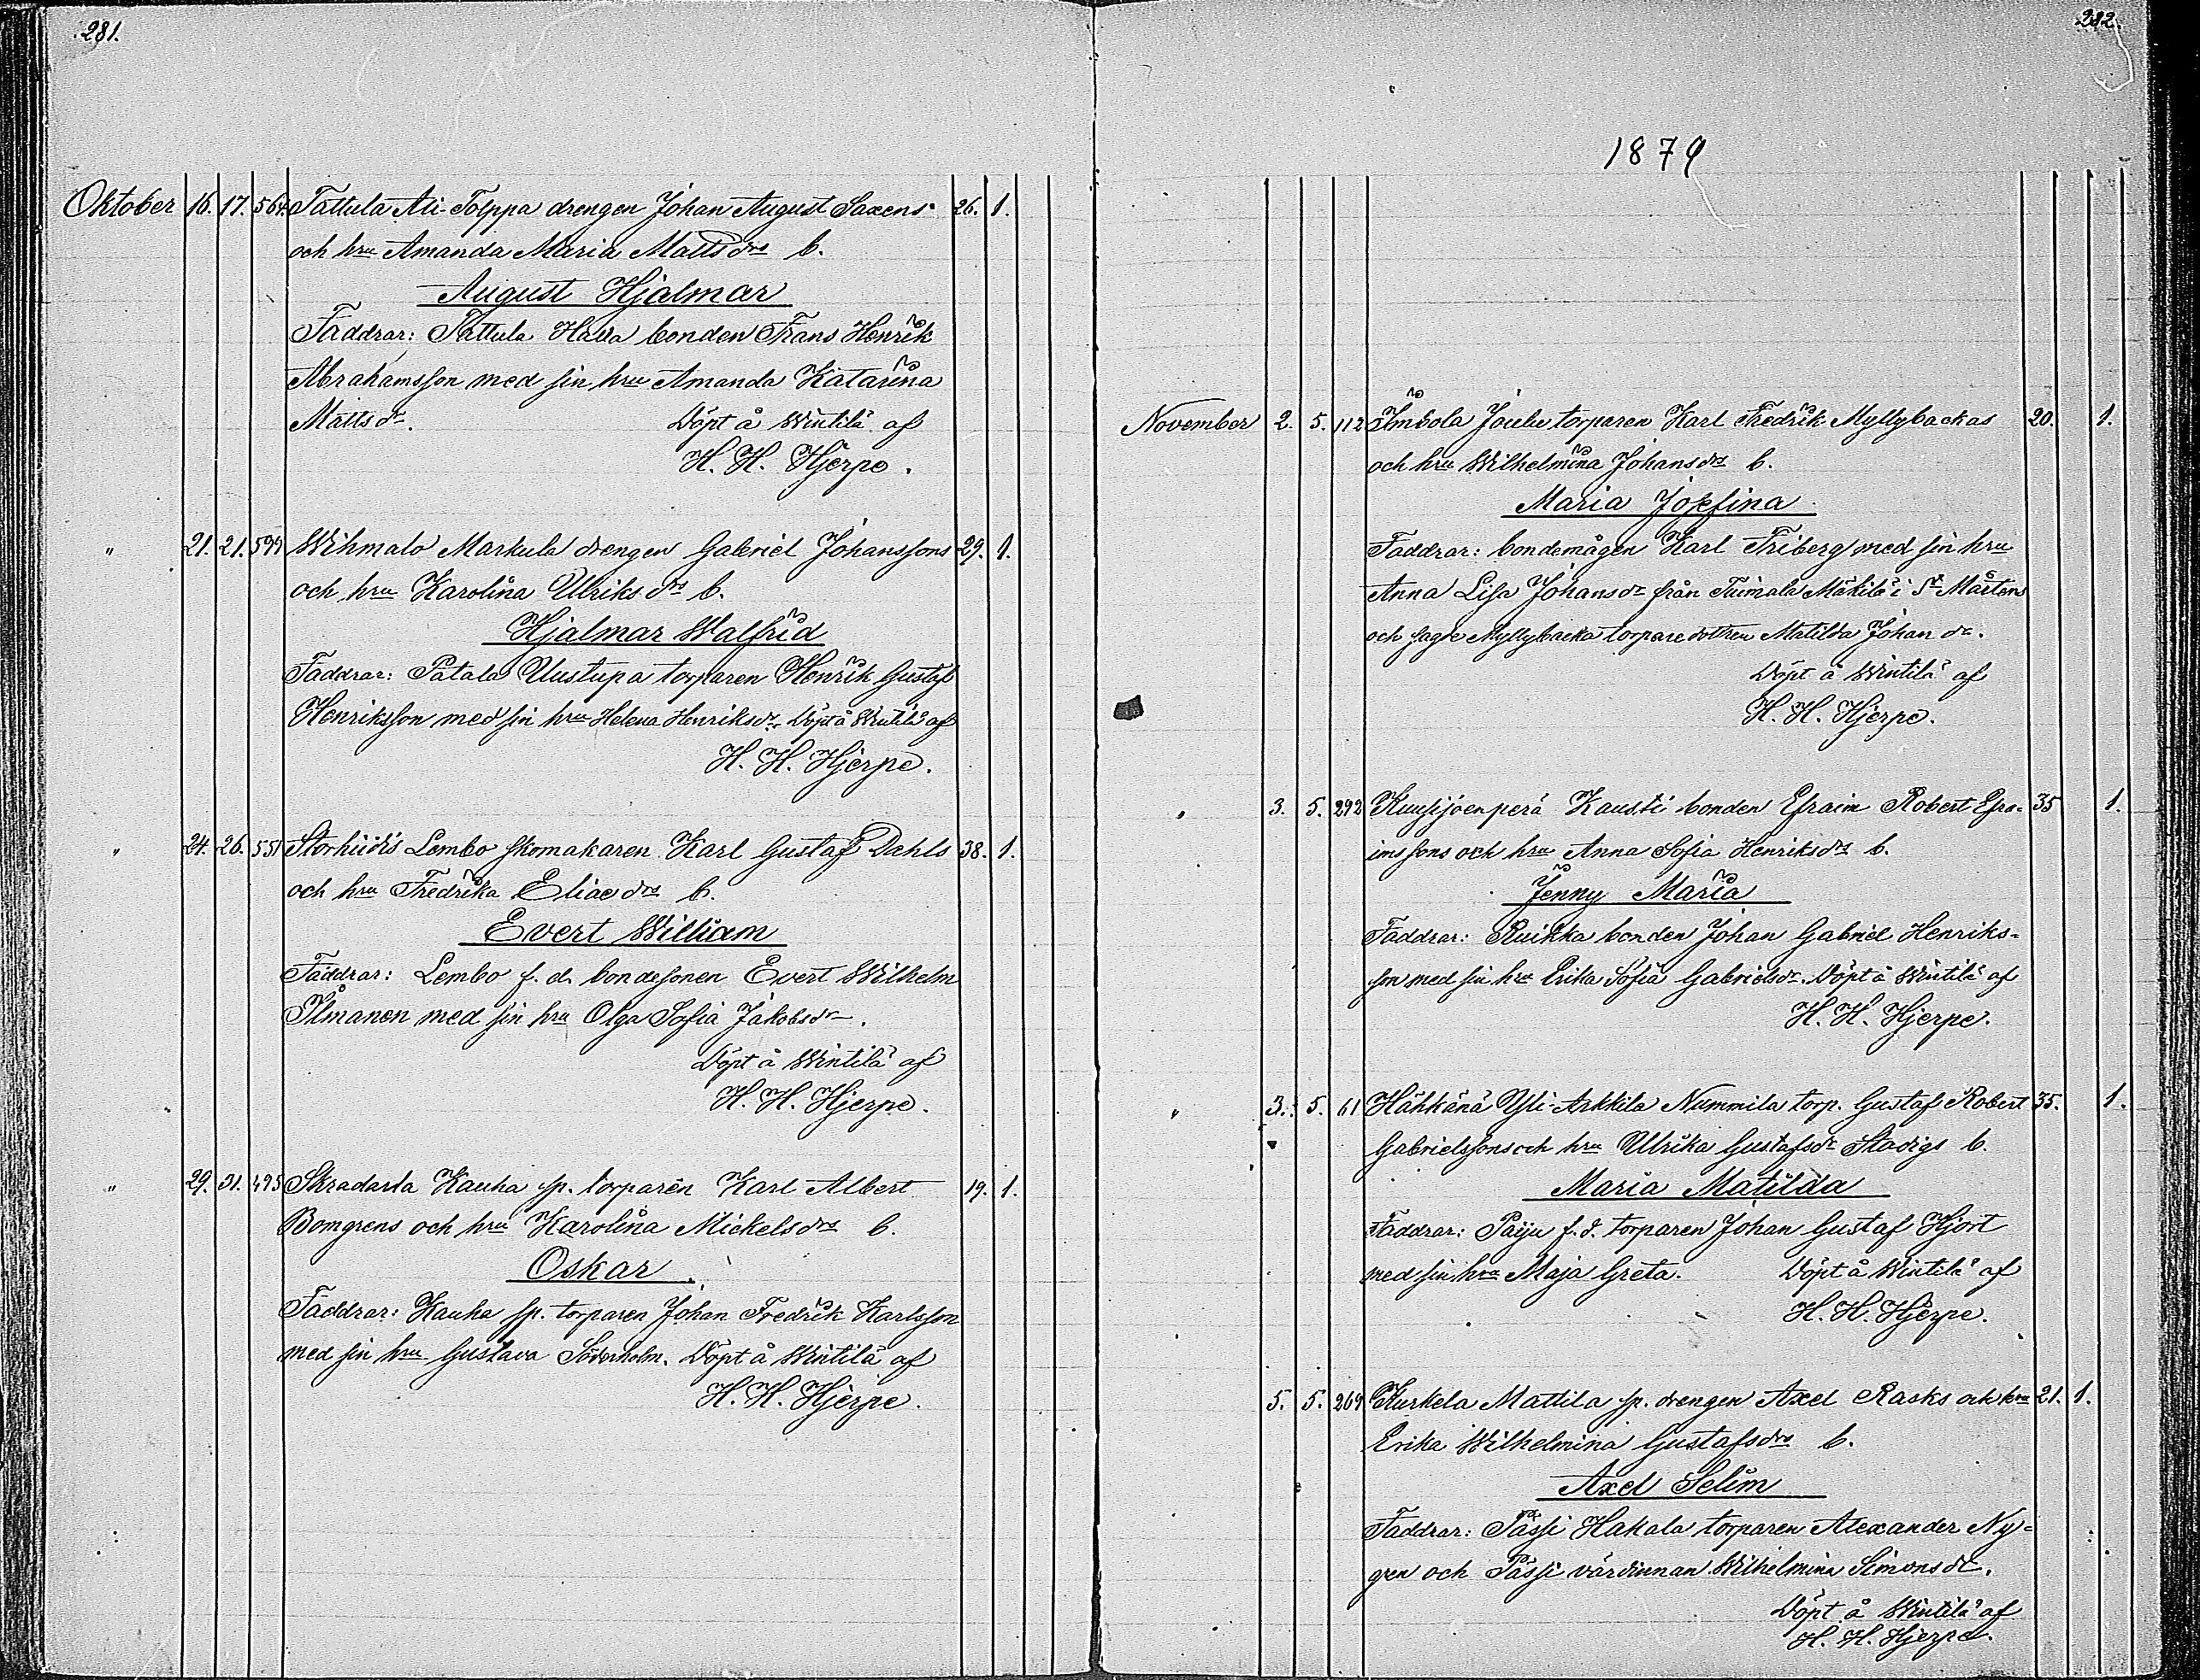 281.
Oktober 16. 17. 564. Tattula Ali-Tolppa drengen Johan August Saxens 26. 1.
och hru Amanda Maria Mattsdrs b.
August Hjalmar
Faddrar: Tattula Hava bonden Frans Henrik
Abrahamsson med sin hru Amanda Katarina
Mattsdr. Döpt å Wintilä af
H. H. Hjerpe.
" 21. 21. 599 Wihmalo Markula drengen Gabriel Johanssons 29. 1.
och hru Karolina Ulriksdrs b.
Hjalmar Walfrid
Faddrar: Patala Uustupa torparen Henrik Gustaf
Henriksson med sin hru Helena Henriksdr. Döpt å Wintilä af
H. H. Hjerpe.
" 24. 26. 551 Storhiidis Lembo skomakaren Karl Gustaf Dahls 38. 1.
och hru Fredrika Eliaedrs b.
Evert William
Faddrar: Lembo f. d. bondesonen Evert Wilhelm
Ilmanen med sin hru Olga Sofia Jakobsdr.
Döpt å Wintilä af
H. H. Hjerpe.
" 29. 31. 495 Skradarla Kauha sp. torparen Karl Albert 19. 1.
Bomgrens och hru Karolina Mickelsdrs b.
Oskar.
Faddrar: Kauha sp. torparen Johan Fredrik Karlsson
med sin hru Gustava Söderholm. Döpt å Wintilä af
H. H. Hjerpe.
282.
1879
November 2. 5. 112 Imbola torparen Karl Fredrik Myllybackas 20. 1.
och hru Wilhelmina Johansdrs b.
Maria Josefina
Faddrar: bondemågen Karl Friberg med sin hru
Anna Lisa Johansdr från Tuimala Mäkilä i St Mårtens
och Myllybacka torparedottren Matilda Johansdr.
Döpt å Wintilä af
H. H. Hjerpe.
" 3. 5. 292 Kuusijoenperä Kausti bonden Efraim Robert Efra- 35 1.
imssons och hru Anna Sofia Henriksdrs b.
Jenny Maria
Faddrar: Ruikka bonden Johan Gabriel Henriks-
son med sin hru Erika Sofia Gabrielsdr. Döpt å Wintilä af
H. H. Hjerpe.
" 3. 5. 61 Hähkänä Yli-Arkkila Nummila torp. Gustaf Robert 35. 1.
Gabrielssons och hru Ulrika Gustafsdr Stadigs b.
Maria Matilda
Faddrar: Paiju f.d. torparen Johan Gustaf Hjort
med sin hru Maja Greta. Döpt å Wintilä af
H. H. Hjerpe.
5. 5. 269 Kurkela Mattila sp. drengen Axel Rasks och hru 21. 1.
Erika Wilhelmina Gustafsdrs b.
Axel Selim
Faddrar: Passi Hakala torparen Alexander Ny-
gren och Passi värdinnan Wilhelmina Simonsdr.
Döpt å Wintilä af
H. H. Hjerpe.